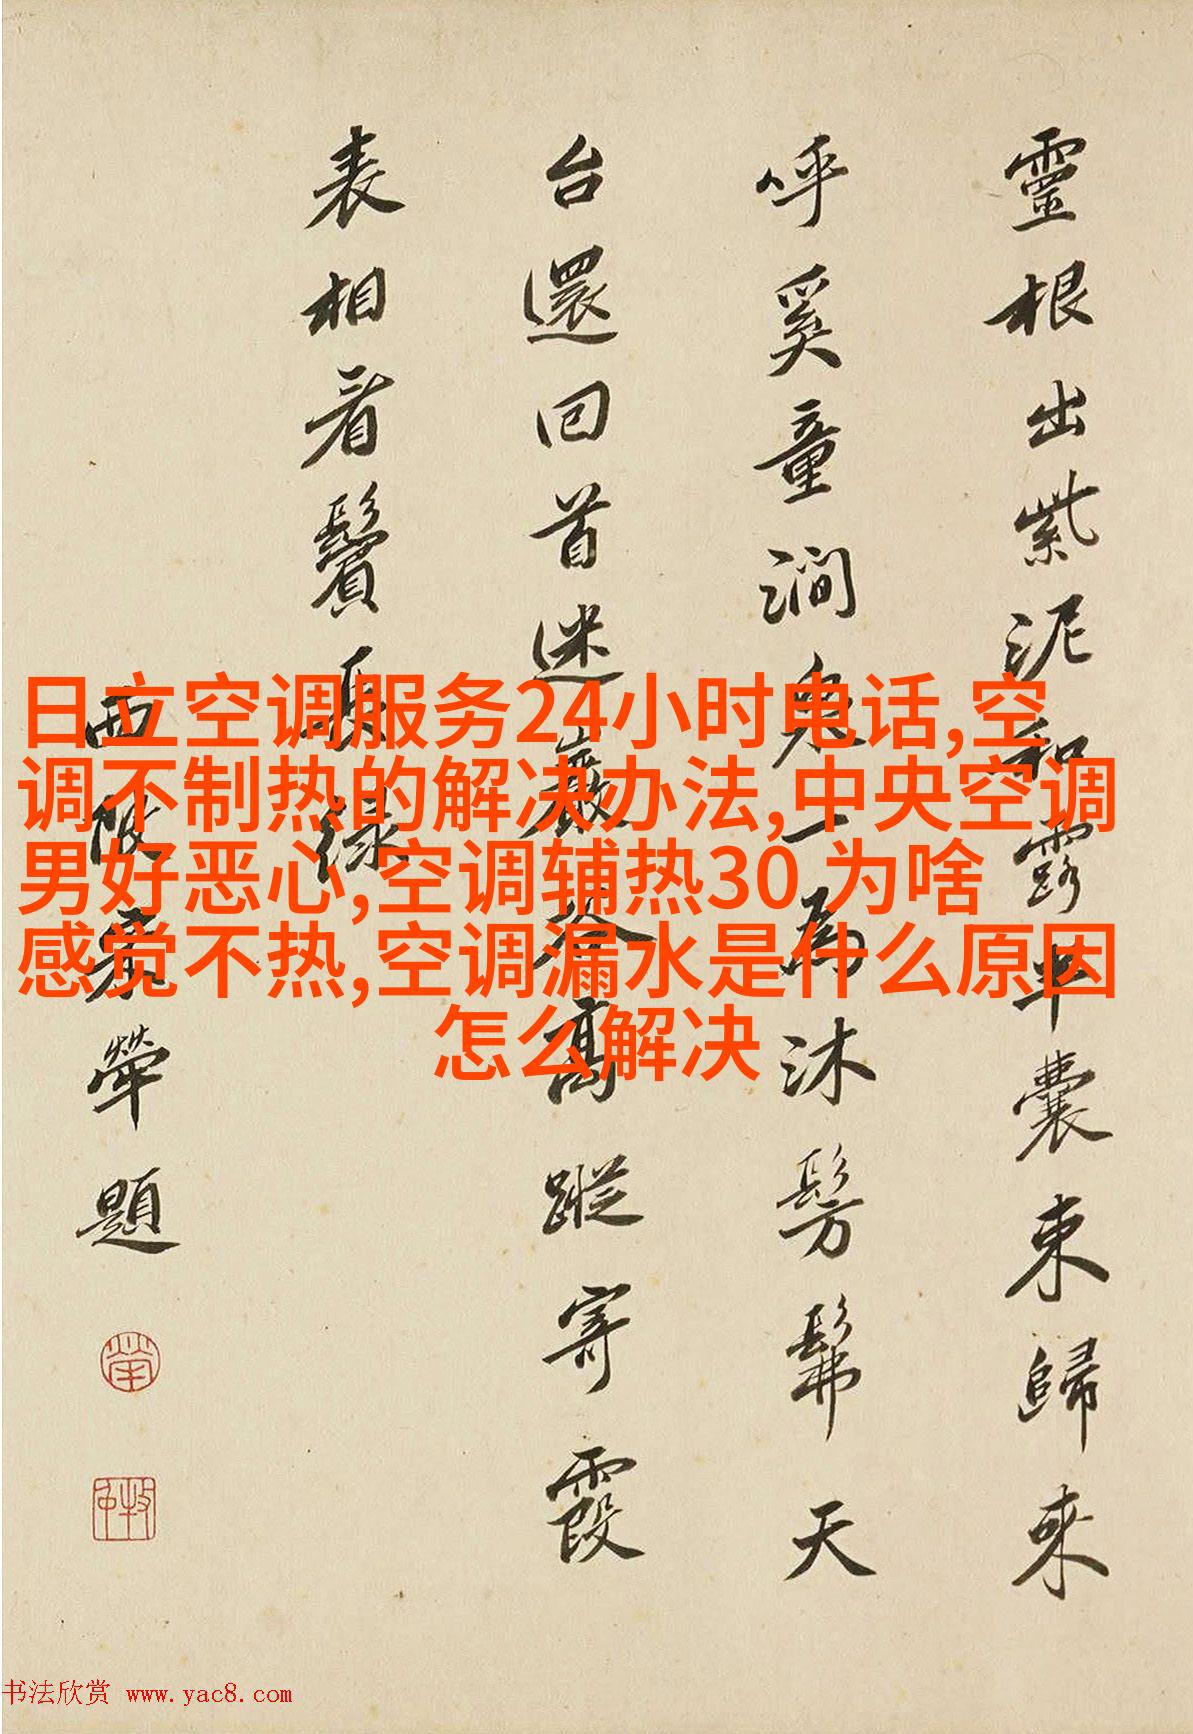 靈根出紫泥和露半囊束歸來
呼奚童澗泉一為沐髣髴天
台還回首迷巖谷高蹤寄霞
表相看鬢長緑
西陂宋犖題
日立空调服务24小时电话,空
调不制热的解决办法,中央空调
男好恶心,空调辅热30 为啥
感觉不热,空调漏水是什么原因
怎么解决
书法欣赏 www.yac8.com